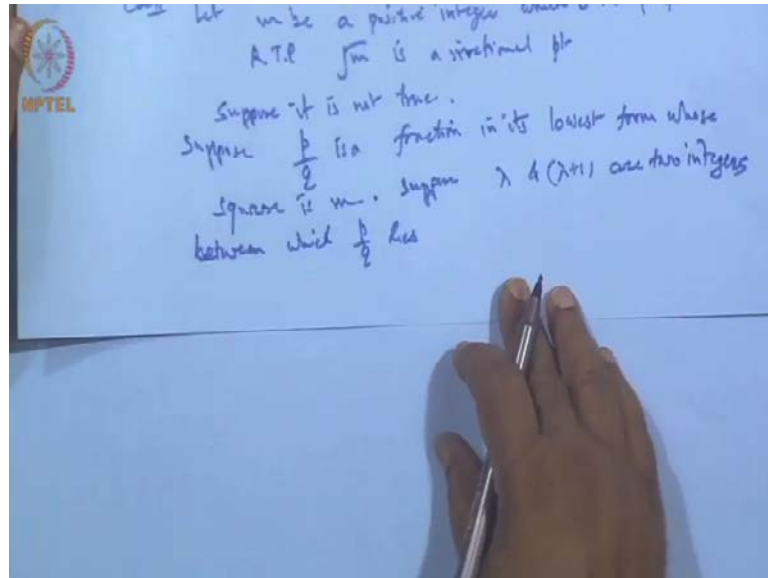 NPTEL
Let m be a positive integer which
R.T.P √m is a irrational
Suppose it is not true.
Suppose p/q is a fraction in its lowest form whose
square is m. Suppose λ & (λ+1) are two integers
between which p/q lies